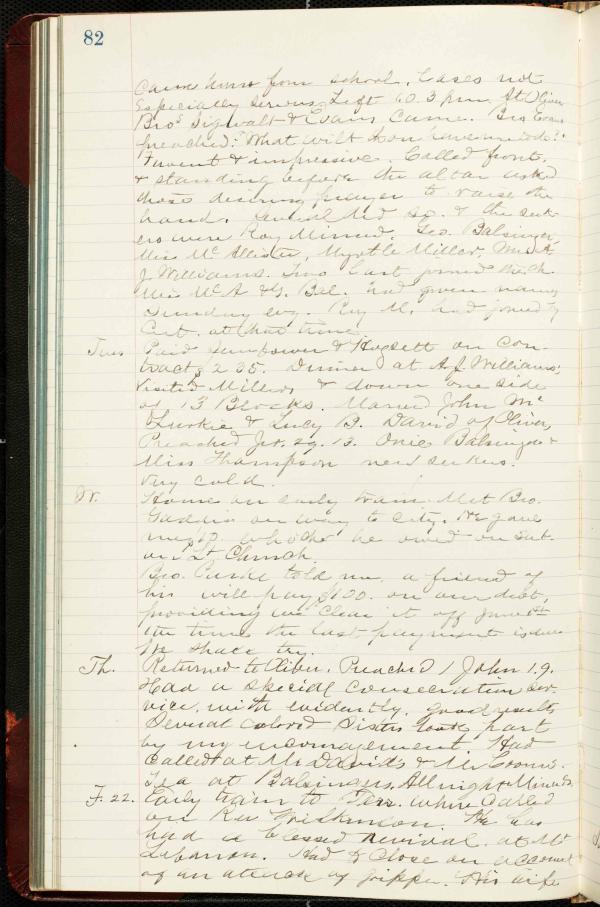 82
came home from school. Cases not
especially serious. Left 6.3 pm. At Oliver
Bros Sigwalt & Evans came. Bro Evans
preached: "What wilt thou have me to do?"
Fervent & impressive. Called front,
& standing before the altar asked
those desiring prayer to raise the
hand. Several did so. & the seek-
ers were Roy Minerd, Geo. Balsinger,
Miss McAllister, Myrtle Miller, Mrs A.
J. Williams. Two last joined the Ch.
Miss McA & G. Bal. had given names
Sunday evg. Roy M. had joined by
Cert. at that time.
Tues Paid & Hogsett on Con-
tract $235. Dinner at A. J. Williams'.
Visited Millers & down one side
of 13 Blocks. Married John Mc
& Lucy B. David of Oliver,
Preached Jr. 29. 13. Balsinger &
Miss Thompson new seekers.
Very cold.
W. Home on early train. Met Bro.
Gaddis on way to city. He gave
me $ he owed on sub-
on Lt Church.
Bro. told me, a friend of
his will pay $100. on our debt,
providing we clear it off
the time the last payment is due
We shall try.
Th. Returned to Oliver. Preached 1 John 1.9.
Had a special consecration ser-
vice, with evidently, good results,
Several colored Sisters took part
by my encouragement. Had
called at Mr David's & Mr
Tea at Balsingers, All night Minerds.
F. 22. Early train to where called
on Rev Wilkinson. He has
had a blessed revival at Mt
Lebanon. Had to close on account
of an attack of grippe. His wife